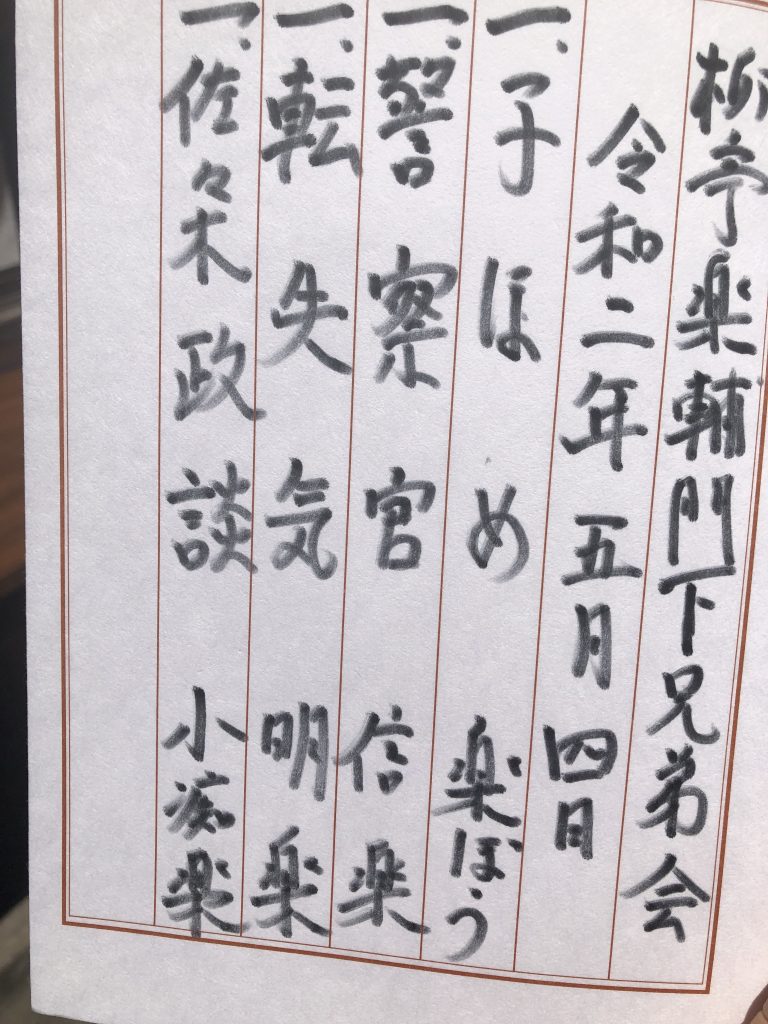 柳亭楽輔門下兄弟会
令和二年五月四日
一、子ほめ 楽ぼう
一、警察官 信楽
一、転失気 明楽
一、佐々木政談 小痴楽